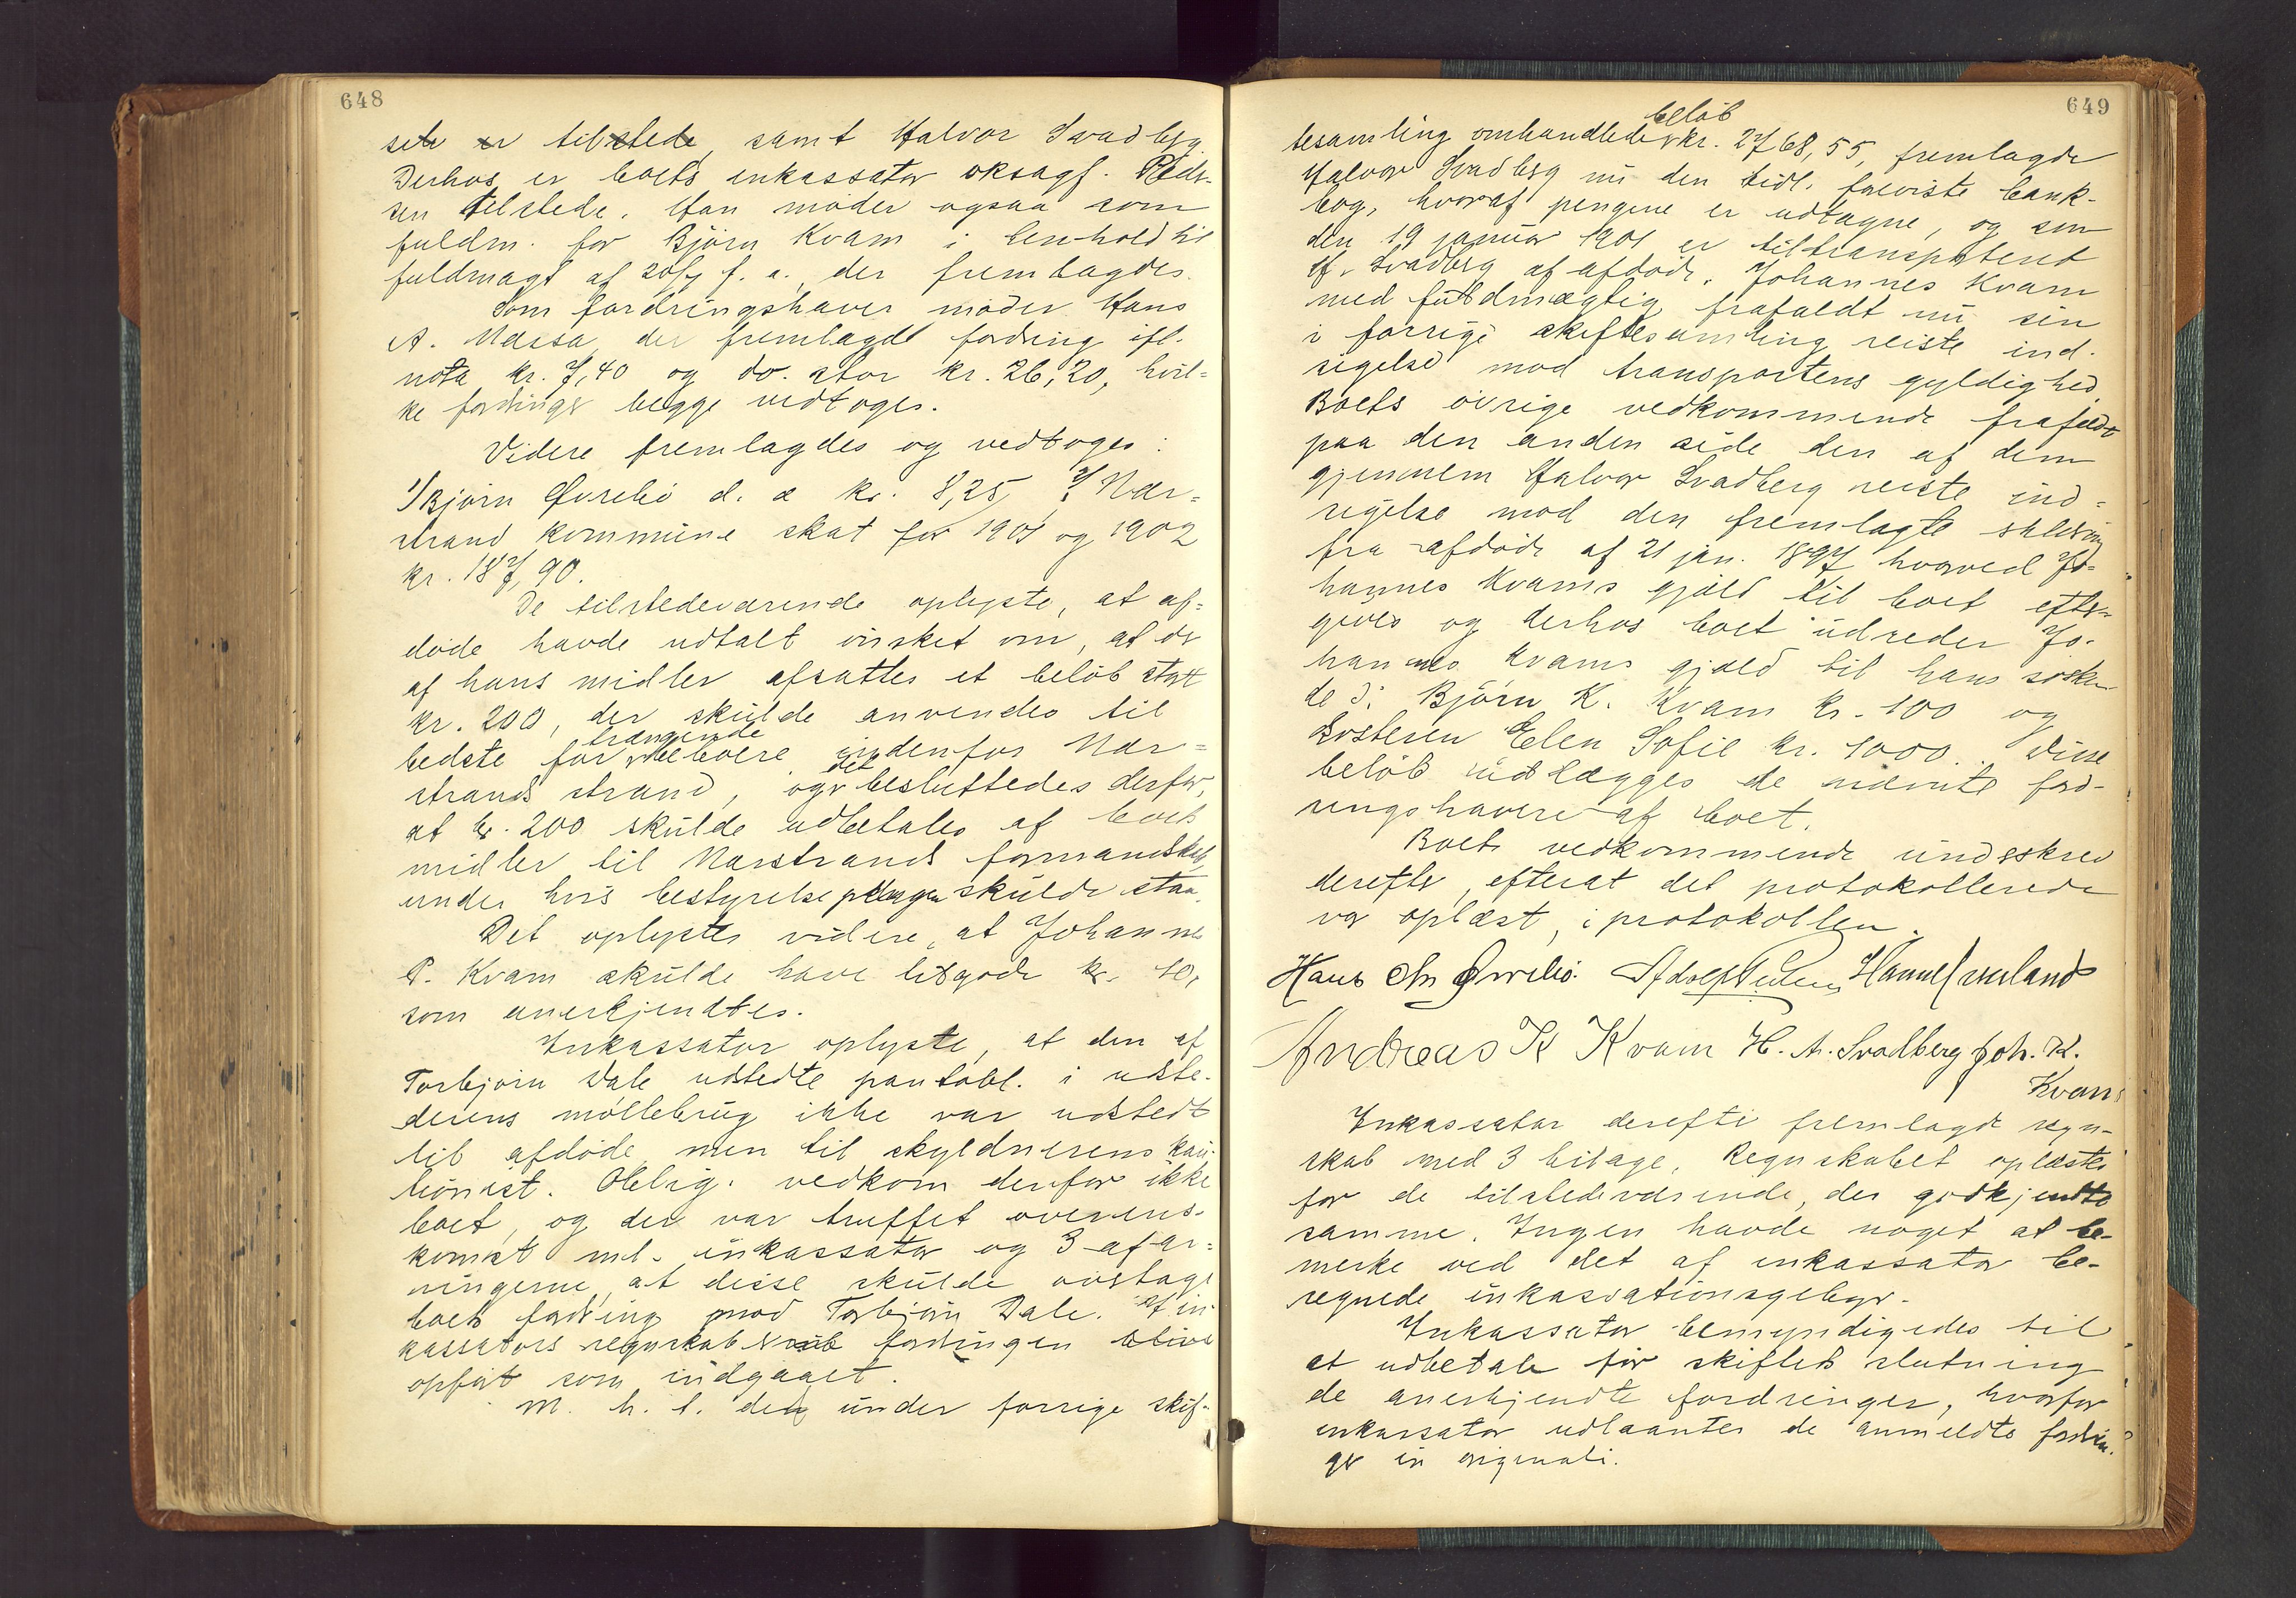 648
sete er tilstede, samt Halvor Svadberg.
Derhos er boets inkassator oksagf. Peder-
sen tilstede. Han møder ogsaa som
fuldm. for Bjørn Kvam i henhold til
fuldmagt af 20/7 f. a., der fremlagdes.
Som fordringshaver møder Hans
A. Næssa, der fremlagde fordring ifl.
nota kr. 7,40 og do. stor kr. 26,20, hvil-
ke fordringer begge vedtoges.
Videre fremlagdes og vedtoges:
1/ Bjørn Øvrebø d. æ kr. 8,25, 2/ Nær-
strand kommune skat for 1901 og 1902
kr. 187,90.
De tilstedeværende oplyste, at af-
døde havde udtalt ønsket om, at der
af hans midler afsattes et beløb stort
kr. 200, der skulde anvendes til
bedste for trængende beboere indenfor Nær-
strands strand, og det besluttedes derfor,
at kr. 200 skulde udbetales af boets
midler til Nærstrands formandskab
under hvis bestyrelse pengene skulde staa.
Det oplystes videre, at Johannes
P. Kvam skulde have tilgode kr. 10,
som anerkjendtes.
Inkassator oplyste, at den af
Torbjørn Dale udstedte pantobl. i udste-
derens møllebrug ikke var udstedt
til afdøde, men til skyldnerens kau-
tionist. Oblig. vedkom derfor ikke
boet, og der var truffet overens-
komst ml. inkassator og 3 af ar-
vingerne, at disse skulde overtage
boets fordring mod Torbjørn Dale. Af in-
kassators regnskab vil fordringen blive
opført som indgaaet.
M. h. t. det under forrige skif-
649
tesamling omhandlede beløb kr. 2768,55, fremlagde
Halvor Svadberg nu den tidl. foreviste bank-
bog, hvoraf pengene er udtagne, og som
den 19 januar 1901 er tiltransporteret
H. Svadberg af afdøde. Johannes Kvam
med fuldmægtig frafaldt nu sin
i forrige skiftesamling reiste ind-
sigelse mod transportens gyldighed.
Boets øvrige vedkommende frafaldt
paa den anden side den af dem
gjennem Halvor Svadberg reiste ind-
sigelse mod den fremlagte skrivelse
fra afdøde af 21 jan. 1897 hvorved Jo-
hannes Kvams gjæld til boet efter-
gives og derhos boet udreder Jo-
hannes Kvams gjæld til hans søsken-
de ɔ: Bjørn K. Kvam kr. 100 og
søsteren Elen Sofie kr. 1000. Disse
beløb udlægges de nævnte ford-
ringshavere af boet.
Boets vedkommende underskrev
derefter, efterat det protokollerede
var oplæst, i protokollen.
Hans Chr Øvrebø. Adolf Pedersen
Andreas K Kvam H. A. Svadberg Joh. K.
Kvam
Inkassator derefter fremlagde regn-
skab med 3 bilage. Regnskabet oplæstes
for de tilstedeværende, der godkjendte
samme. Ingen havde noget at be-
merke ved det af inkassator be-
regnede inkassationsgebyr.
Inkassator bemyndigedes til
at udbetale før skiftets slutning
de anerkjendte fordringer, hvorfor
inkassator udlaantes de anmeldte fordrin-
ger in originali.